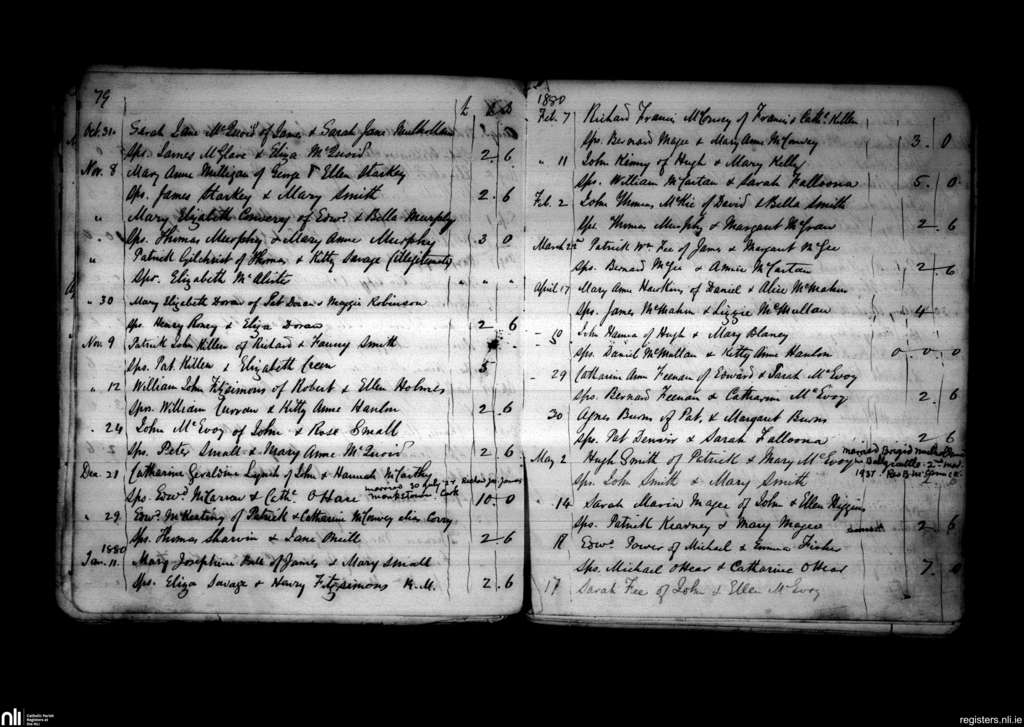 79
£ s D
Oct. 31. Sarah Jane McQuoid of James & Sarah Jane Mulholland
Sps. James McGlave & Eliza McQuoid 2. 6
Nov. 8 Mary Anne Mulligan of George & Ellen Starkey
Sps. James Starkey & Mary Smith 2. 6
" Mary Elizabeth Conveny of Edwd. & Bella Murphy
Sps. Thomas Murphy & Mary Anne Murphy 3 0
" Patrick Gilchrist of Thomas & Kitty Savage (illegitimate)
Spr. Elizabeth McAlister " " "
" 30 Mary Elizabeth Doran of Pat Doran & Maggie Robinson
Sps. Henry Roney & Eliza Doran 2 6
Nov. 9 Patrick John Killen of Richard & Fanny Smith
Sps. Pat. Killen & Elizabeth Creen 5
" 12 William John Fitzsimons of Robert & Ellen Holmes
Spns. William Curran & Kitty Anne Hanlon 2. 6
" 24 John McEvoy of John & Rose Small
Sps. Peter Small & Mary Anne McQuoid 2 6
Dec. 28 Catharine Geraldine Lynch of John & Hannah McCarthy
married 30 July 24 Richard Jas. James
Sps. Edwd. McCarron & Cathe. OHare monkstown Cork 10. 0
" 29 Edwd. McKeating of Patrick & Catharine McConvey alias Corry
Sps. Thomas Sharvin & Jane Oneill 2. 6
1880
Jan. 11. Mary Josephine Bell of James & Mary Small
Sps. Eliza Savage & Henry Fitzsimons K.M. 2. 6
1880
Feb. 7 Richard Francis McConvey of Francis & Cathe. Killen
Sps. Bernard Magee & Mary Anne McConvey 3. 0
" 11 John Kinny of Hugh & Mary Kelly
Sps. William McCartan & Sarah Falloona 5. 0
Feb. 2 John Thomas McKie of David & Bella Smith
Sps. Thomas Murphy & Margaret McGran 2. 6
March 22nd Patrick Wm. Fee of James & Margaret McGee
Sps. Bernard McGee & Annie McCartan 2. 6
April 17 Mary Anne Hawkins of Daniel & Alice McMahon
Sps. James McMahon & Lizzie McMullan 4
- 10 John Hanna of Hugh & Mary Blaney
5
Sps. Daniel McMullan & Kitty Anne Hanlon 0. 0. 0
- 29 Catharine Ann Feenan of Edward & Sarah McEvoy
Sps. Bernard Feenan & Catharine McEvoy 2. 6
30 Agnes Burns of Pat. & Margaret Burns
Sps. Pat Denvir & Sarah Falloona 2 6
May 2 Hugh Smith of Patrick & Mary McEvoy married Brigid
in Ballycastle 2nd
1937. Rev B.
Sps. John Smith & Mary Smith 2. 0
" 14 Sarah Maria Magee of John & Ellen Higgins
Sps. Patrick Kearney & Mary Magee 2 6
18 Edwd. Power of Michael & Emma Fisher
Sps. Michael OHear & Catharine OHear 7. 0
17 Sarah Fee of John & Ellen McEvoy
nli Catholic Parish
Registers at
the NLI
registers.nli.ie